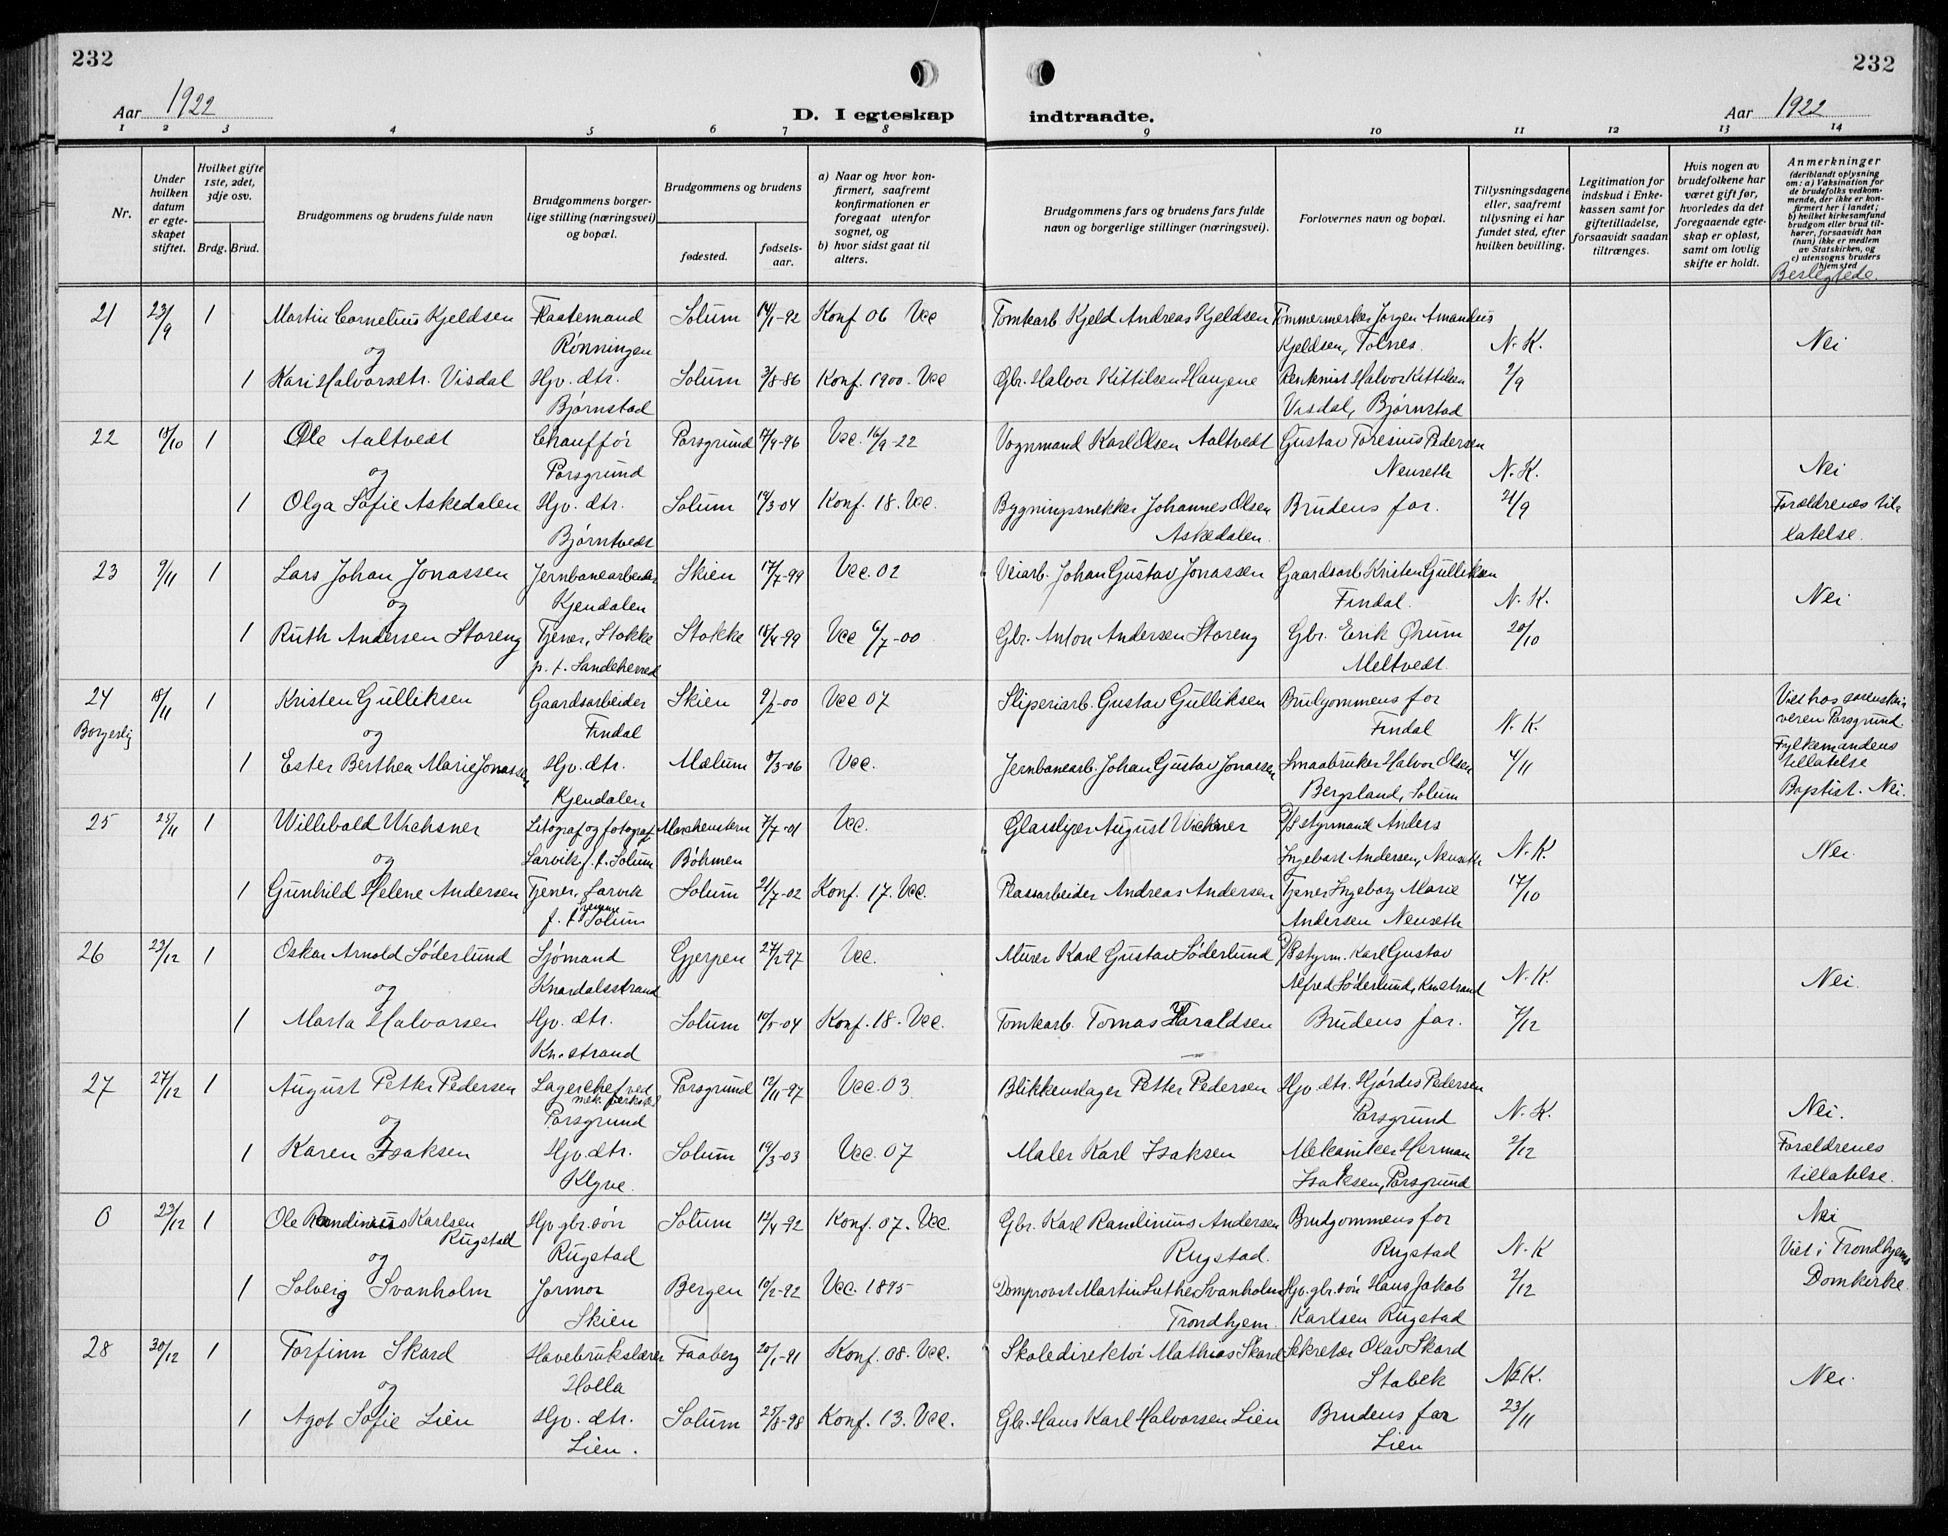 232
232
Aar 1922
D. I egteskap
indtraadte.
Aar 1922
1 2 3 4 5 6 7 8 9 10 11 12 13 14
Nr.
Under hvilken datum er egteskapet stiftet.
Hvilket gifte 1ste, 2det, 3dje osv.
Brdg. Brud.
Brudgommens og brudens fulde navn
Brudgommens borgerlige stilling (næringsvei) og bopæl.
Brudgommens og brudens
fødested.
fødselsaar.
a) Naar og hvor konfirmert, saafremt konfirmationen er foregaat utenfor sognet, og
b) hvor sidst gaat til alters.
Brudgommens fars og brudens fars fulde navn og borgerlige stillinger (næringsvei).
Forlovernes navn og bopæl.
Tillysningsdagene eller, saafremt tillysning ei har fundet sted, efter hvilken bevilling.
Legitimation for indskud i Enkekassen samt for giftetilladelse, forsaavidt saadan tiltrænges.
Hvis nogen av brudefolkene har været gift før, hvorledes da det foregaaende egteskap er opløst, samt om lovlig skifte er holdt.
Anmerkninger (deriblandt oplysning om: a) Vaksination for de brudefolks vedkommende, der ikke er konfirmert her i landet; b) hvilket kirkesamfund brudgom eller brud tilhører, forsaavidt han (hun) ikke er medlem av Statskirken, og c) utensogns bruders hjemsted
Beslegtede
21 23/9 1 Martin Cornelius Kjeldsen Flaatemand Solum 14/1-92 Konf 06 Vcc Tomtarb. Kjeld Andreas Kjeldsen Tømmermerker Jørgen Amandus
og Rønningen Kjeldsen, Tolnes. N. K. Nei
1 Kari Halvorsdtr. Visdal Hjv. dtr. Solum 3/8-86 Konf. 1900. Vcc Gbr. Halvor Kittilsen Haugene Halvor Kittilsen 2/9
Bjørnstad Visdal, Bjørnstad
22 18/10 1 Ole Aaltvedt Chauffør Porsgrund 17/4-96 Vcc. 16/9-22 Vognmand Karl Olsen Aaltvedt Gustav Toresius Pedersen
og Porsgrund Nenseth N. K. Nei
1 Olga Sofie Askedalen Hjv. dtr. Solum 14/3-04 Konf. 18. Vcc. Bygningssnekker Johannes Olsen Brudens far. 21/9 Forældrenes til-
Bjørntvedt Askedalen. latelse.
23 9/11 1 Lars Johan Jonassen Jernbanearbeider Skien 17/7-99 Vcc. 02 Veiarb. Johan Gustav Jonassen Gaardsarb Kristen Gulliksen
og Kjendalen Findal. N. K. Nei
1 Ruth Andersen Storeng Tjener, Stokke Stokke 18/4-99 Vcc 6/7-00 Gbr. Anton Andersen Storeng Gbr. Erik Ørum 20/10
p. t. Sandeherred Meltvedt.
24 18/11 1 Kristen Gulliksen Gaardsarbeider Skien 9/2-00 Vcc 07 Sliperiarb. Gustav Gulliksen Brudgommens far Viet hos sorenskri
Borgerlig og Findal Findal N. K. veren Porsgrund.
Fylkemandens
1 Ester Berthea Marie Jonassen Hjv. dtr. Mælum 8/3-06 Vcc. Jernbanearb. Johan Gustav Jonassen Smaabruker Halvor Olsen 4/11 tillatelse
Kjendalen Bergsland, Solum Baptist. Nei.
25 25/11 1 Willibald Wichsner Litograf og fotograf 7/7-01 Vcc. Glassliper August Wichsner styrmand Anders
og Larvik f. t. Solum Böhmen Ingebart Andersen, Nenseth N. K. Nei.
1 Gunhild Helene Andersen Tjener, Larvik Solum 21/7-02 Konf. 17. Vcc. Plassarbeider Andreas Andersen Tjener Ingeborg Marie 17/10
f. t. hjemme Solum Andersen Nenseth
26 23/12 1 Oskar Arnold Söderlund Sjømand Gjerpen 27/2-97 Vcc. Murer Karl Gustav Söderlund styrm. Karl Gustav
og Knardalsstrand Alfred Söderlund, Kn.strand N. K. Nei.
1 Marta Halvorsen Hjv. dtr. Solum 10/5-04 Konf. 18. Vcc. Tomtarb. Tomas Haraldsen Brudens far. 7/12
Kn.strand
27 27/12 1 August Petter Pedersen Lagerchef ved Porsgrund 12/11-97 Vcc. 03 Blikkenslager Petter Pedersen Hjv. dtr. Hjördis Pedersen
og mek. verksted Porsgrund Porsgrund N. K. Nei.
1 Karen Isaksen Hjv. dtr. Solum 19/3-03 Vcc. 07 Maler Karl Isaksen Mekaniker Herman 2/12 Forældrenes
Klyve. Isaksen, Porsgrund tillatelse.
0 23/12 1 Ole Randinius Karlsen Hjv. gbr.søn Solum 12/4-92 Konf. 07. Vcc. Gbr. Karl Randinius Andersen Brudgommens far Nei
Rugstad
og Rugstad Rugstad. Rugstad N. K Viet i Trondhjems
1 Solveig Svanholm Jormor Bergen 10/2-92 Vcc. 1895 Domprovst Martin Luther Svanholm Hjv. gbr. søn Hans Jakob 2/12 Domkirke.
Skien Trondhjem. Karlsen Rugstad
28 30/12 1 Torfinn Skard Havebrukslærer Faaberg 20/1-91 Konf. 08. Vcc. Skoledirektør Mathias Skard Sekretær Olav Skard
og Holla Stabek N. K. Nei.
1 Agot Sofie Lien Hjv. dtr. Solum 25/8-98 Konf. 13. Vcc. Gbr. Hans Karl Halvorsen Lien Brudens far 23/11
Lien. Lien